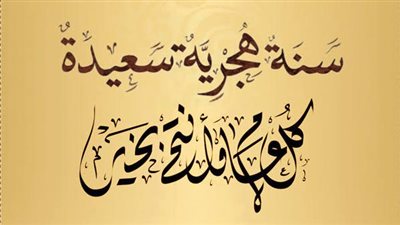 سَنَةٌ هِجْرِيَّةٌ سَعِيدَةٌ
كل عام وأنتم بخير